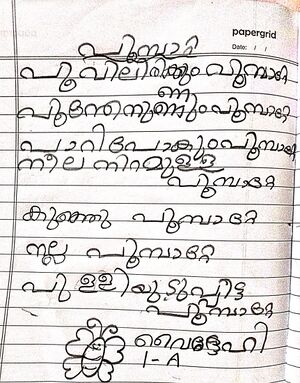 papergrid
Date: / /
പൂമ്പാറ്റ
പൂവിലിരിക്കും പൂമ്പാറ്റേ
പൂന്തേനുണ്ണും പൂമ്പാറ്റേ
പാറിപോകും പൂമ്പാറ്റേ
നീല നിറമുള്ള
പൂമ്പാറ്റേ
കുഞ്ഞു പൂമ്പാറ്റേ
നല്ല പൂമ്പാറ്റേ
പുള്ളിയുടുപ്പിട്ട
പൂമ്പാറ്റേ
വൈദേഹി
1-A